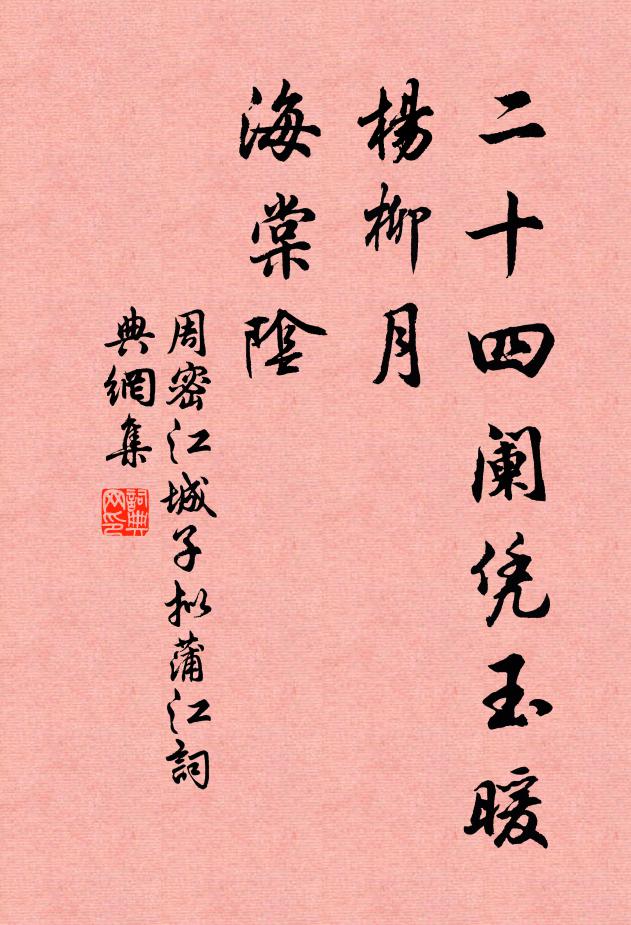 二十四阑凭玉暖
楊柳月
海棠陰
周密江城子拟蒲江詞
典網集
詞典
网印